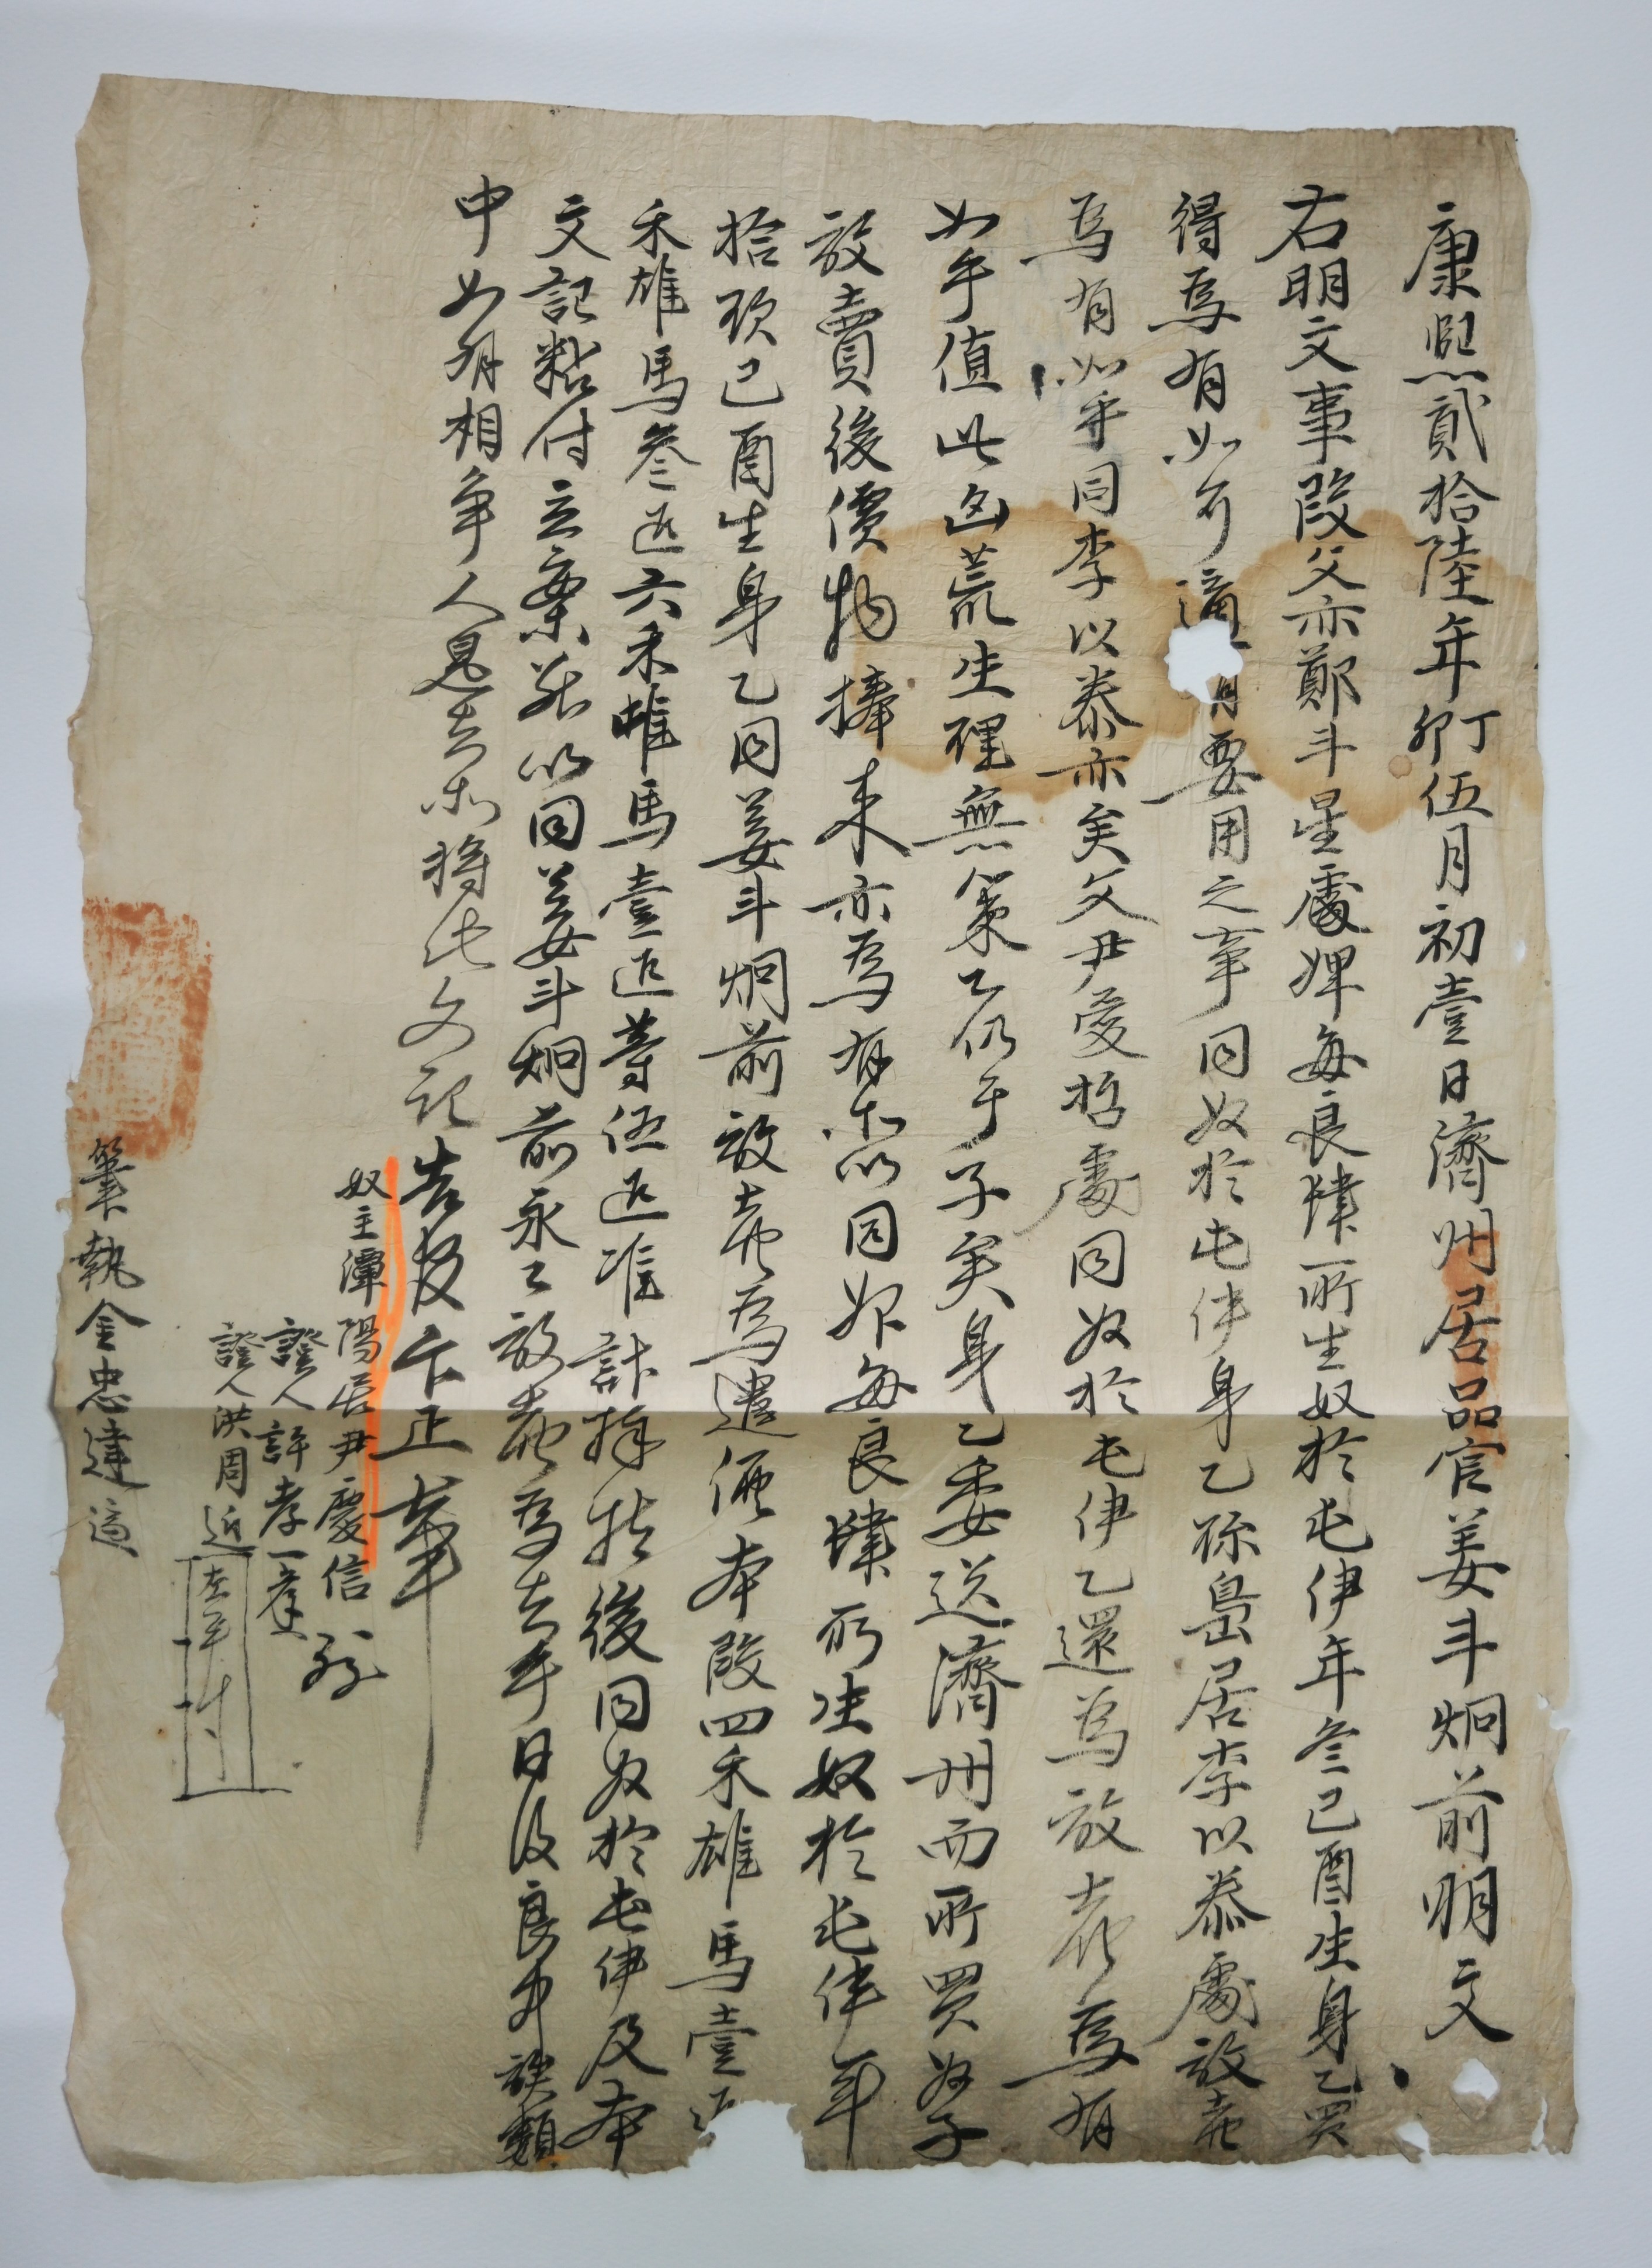 康熙貳拾陸年丁卯伍月初壹日濟州居品官姜斗炯前明文
右明文事段父亦鄭斗星處婢每良陸所生奴於屯伊年參己酉生身乙買
得爲有如可適 有要用之事同奴於屯伊身乙珍島居李以泰處放賣
爲有如乎同李以泰亦矣父尹愛哲處同奴於屯伊乙還爲放賣爲有
如乎値此凶荒生理無策乙仍于子矣身乙委送濟州而所買奴子
放賣後價物捧來亦爲有等以同婢每良陸所生奴於屯伊年
拾玖己酉生身乙同姜斗炯前放賣爲遣價本段四禾雄馬壹匹
禾雄馬參匹六禾雌馬壹匹等伍匹准計捧上後同奴於屯伊及本
文記粘付立案幷以同姜斗炯前永永放賣爲去乎日後良中族類
中如有相爭人是去等將此文記告官卞正事
奴主潭陽居尹慶信
證人許孝一
證人洪周近 左手寸
筆執金忠達